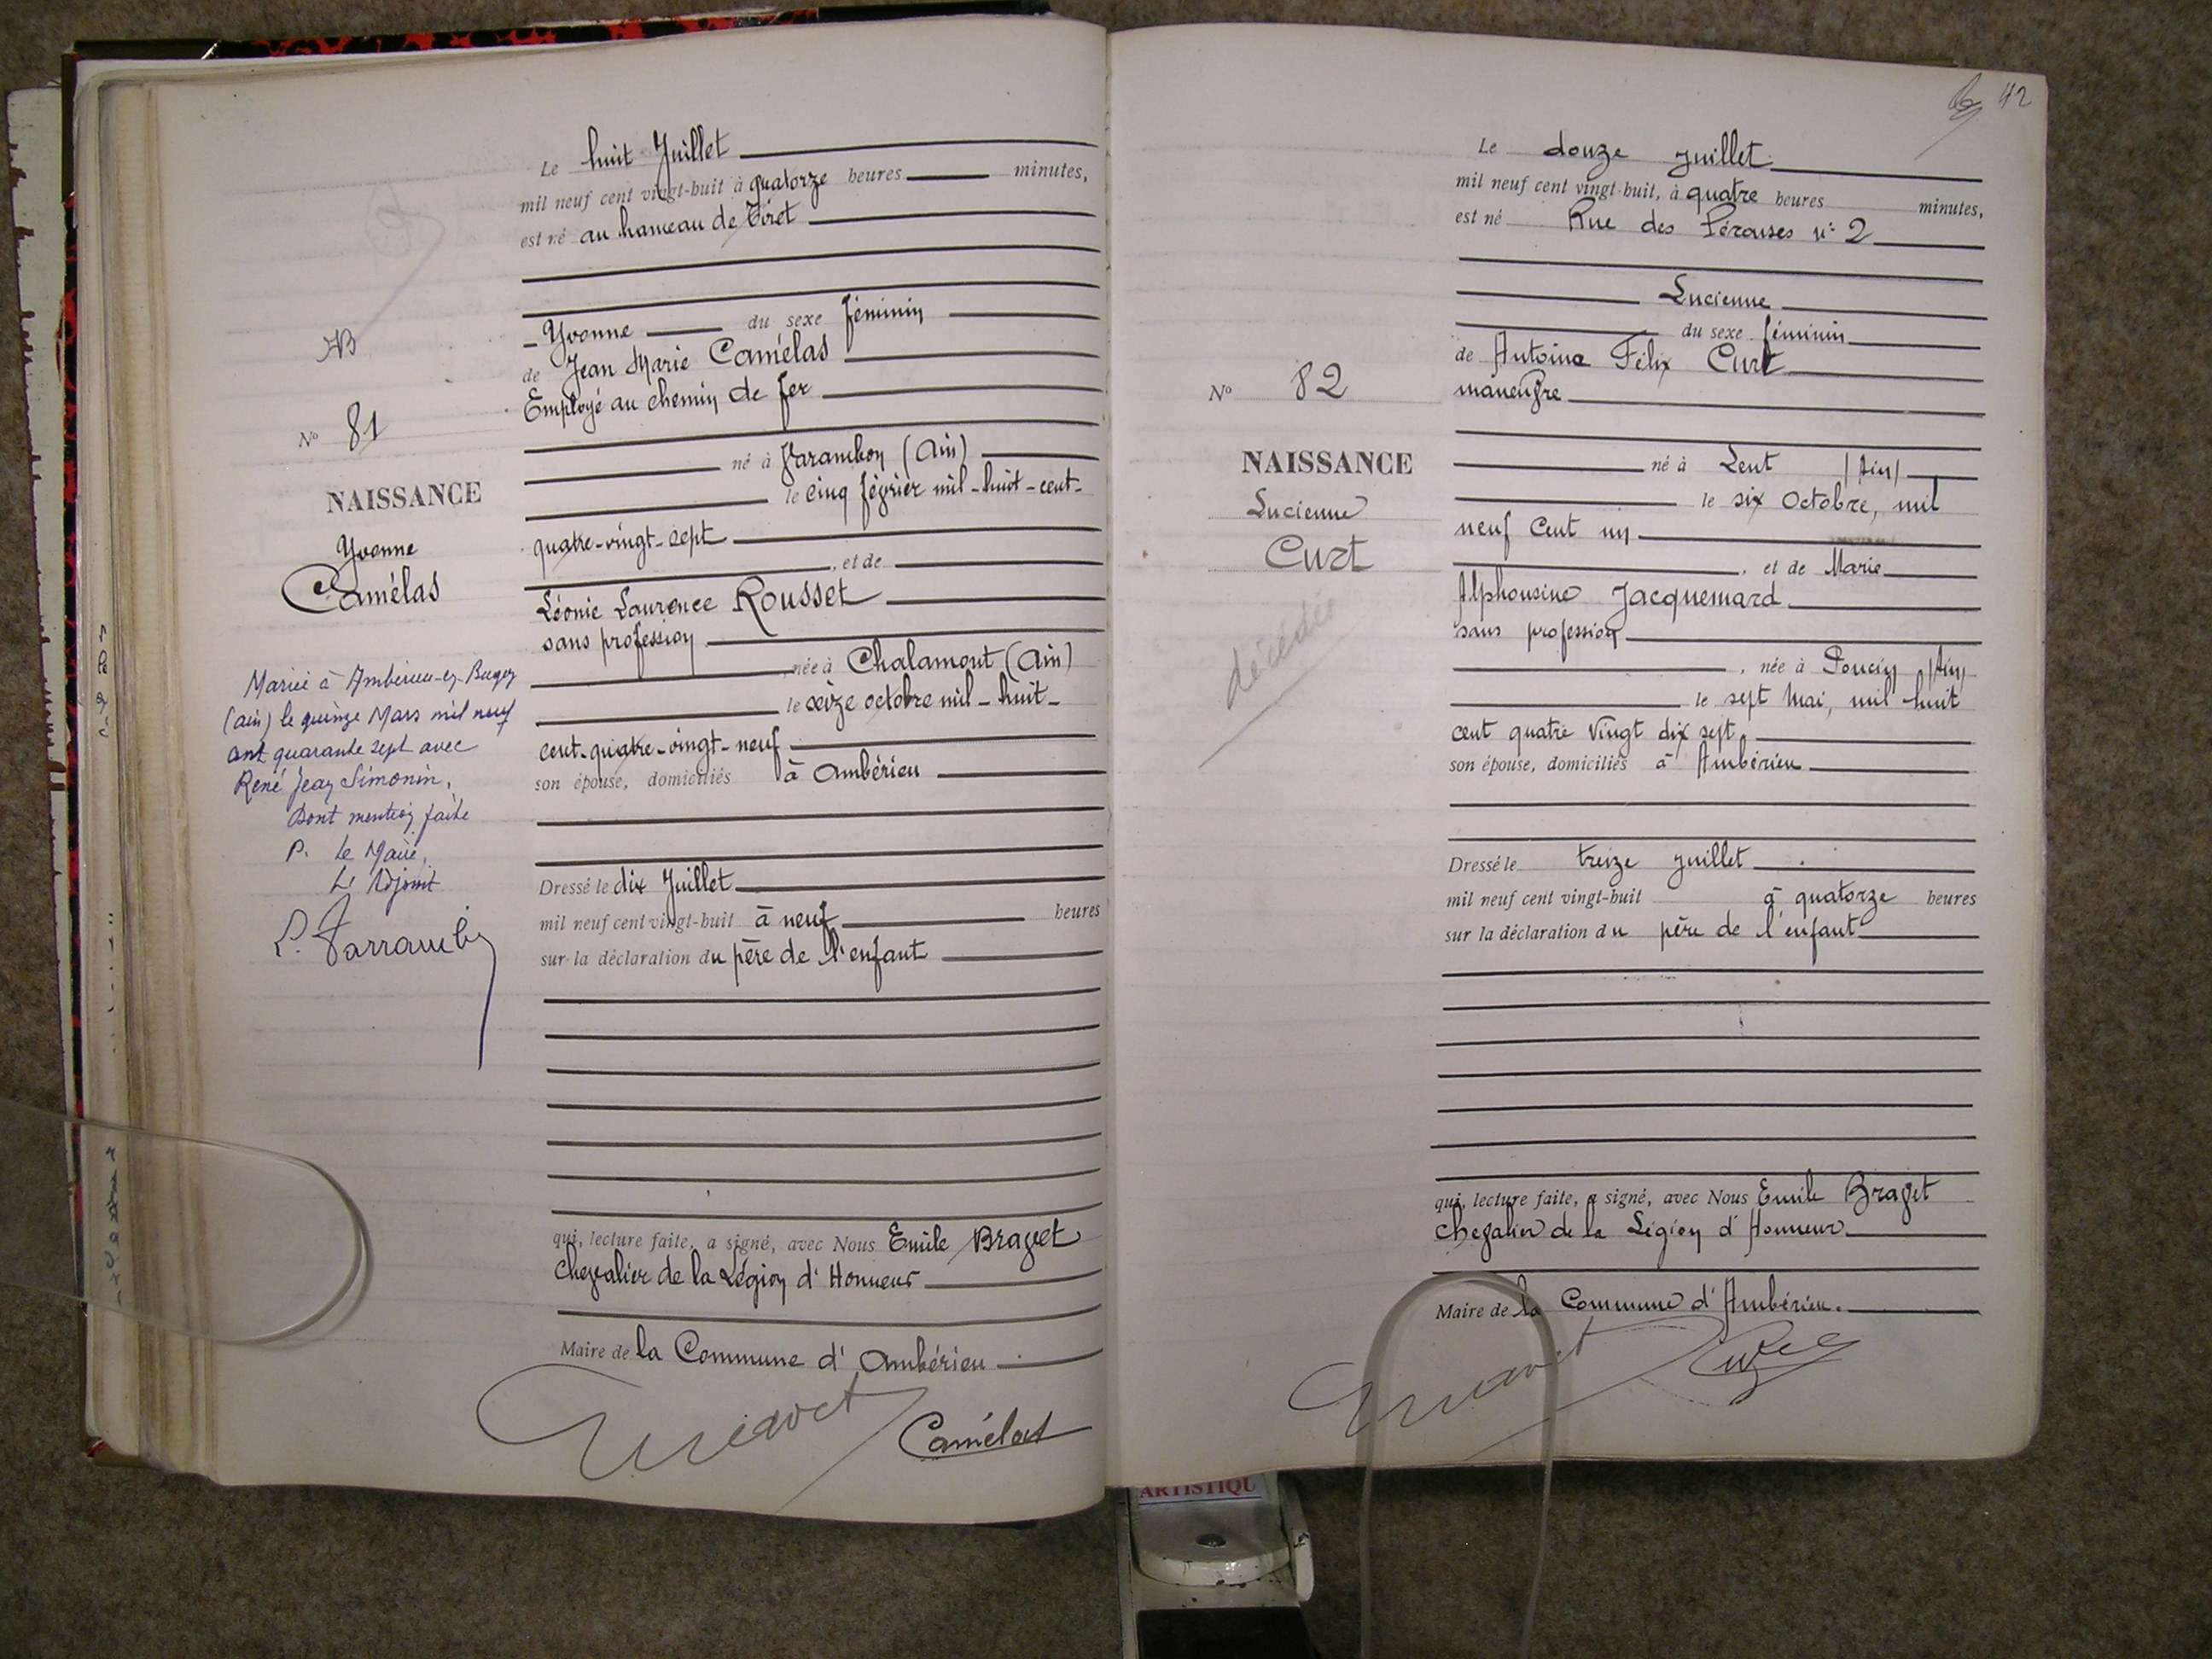 Le huit Juillet
mil neuf cent vingt-huit à quatorze heures minutes,
est né au hameau de Tiret
Yvonne du sexe féminin
de Jean Marie Camélas
Employé au chemin de fer
né à Varambon (Ain)
le cinq février mil-huit-cent-
quatre-vingt-sept
, et de
Léonie Laurence Rousset
sans profession
née à Chalamont (Ain)
le seize octobre mil-huit-
cent-quatre-vingt-neuf
son épouse, domiciliés à Ambérieu
Dressé le dix Juillet
mil neuf cent vingt-huit à neuf heures
sur la déclaration du père de l'enfant
qui, lecture faite, a signé, avec Nous Emile Bravet
Chevalier de la Légion d'Honneur
Maire de la Commune d'Ambérieu
Camélas
No 81
NAISSANCE
Yvonne
Camélas
Mariée à Ambérieu-en-Bugey
(ain) le quinze Mars mil neuf
cent quarante sept avec
René Jean Simonin.
Dont mention faite
P. Le Maire,
L'Adjoint
42
Le douze juillet
mil neuf cent vingt-huit, à quatre heures minutes,
est né Rue des Pérouses n° 2
Lucienne
du sexe féminin
de Antoine Félix Curt
manœuvre
né à Lent (Ain)
le six Octobre, mil
neuf Cent un
, et de Marie
Alphonsine Jacquemard
sans profession
, née à Poncin (Ain)
le sept Mai, mil huit
cent quatre Vingt dix sept.
son épouse, domiciliés à Ambérieu
Dressé le treize juillet
mil neuf cent vingt-huit à quatorze heures
sur la déclaration du père de l'enfant
qui, lecture faite, a signé, avec Nous Emile Bravet
Chevalier de la Légion d'Honneur
Maire de la Commune d'Ambérieu.
No 82
NAISSANCE
Lucienne
Curt
décédée
ARTISTIQU